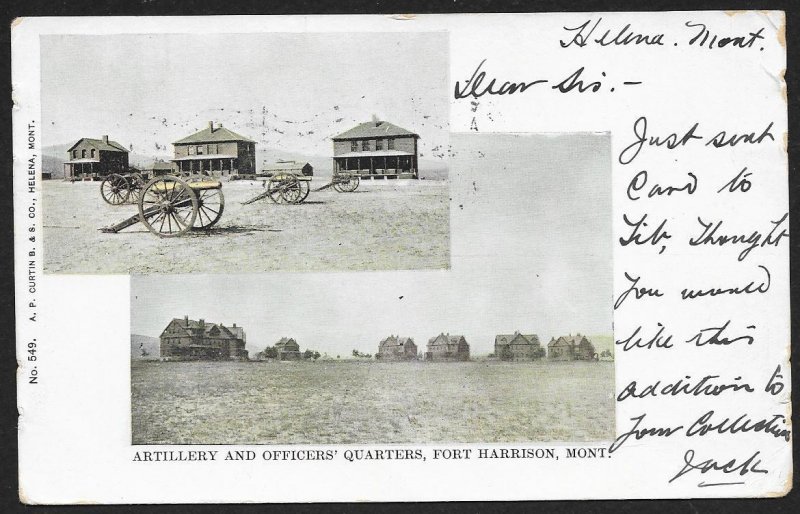 Helena. Mont.
Dear Sis. -
Just sent
Card to
Tib, Thought
You would
like this
addition to
Your Collection
Jack
ARTILLERY AND OFFICERS' QUARTERS, FORT HARRISON, MONT.
No. 549. A. P. CURTIN B. & S. CO., HELENA, MONT.